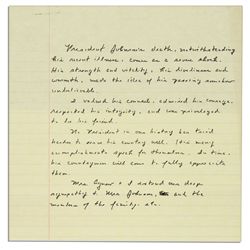 President Johnson's death, notwithstanding
his recent illness, comes as a severe shock.
His strength and vitality, his liveliness and
warmth, made the idea of his passing somehow
unbelievable.
I valued his counsel, admired his courage,
respected his integrity, and was privileged
to be his friend.
No President in our history has tried
harder to serve his country well. His many
accomplishments speak for themselves. In time,
his countrymen will come to fully appreciate
them.
Mrs. Agnew & I extend our deep
sympathy to Mrs. Johnson, and the
members of the family. etc.